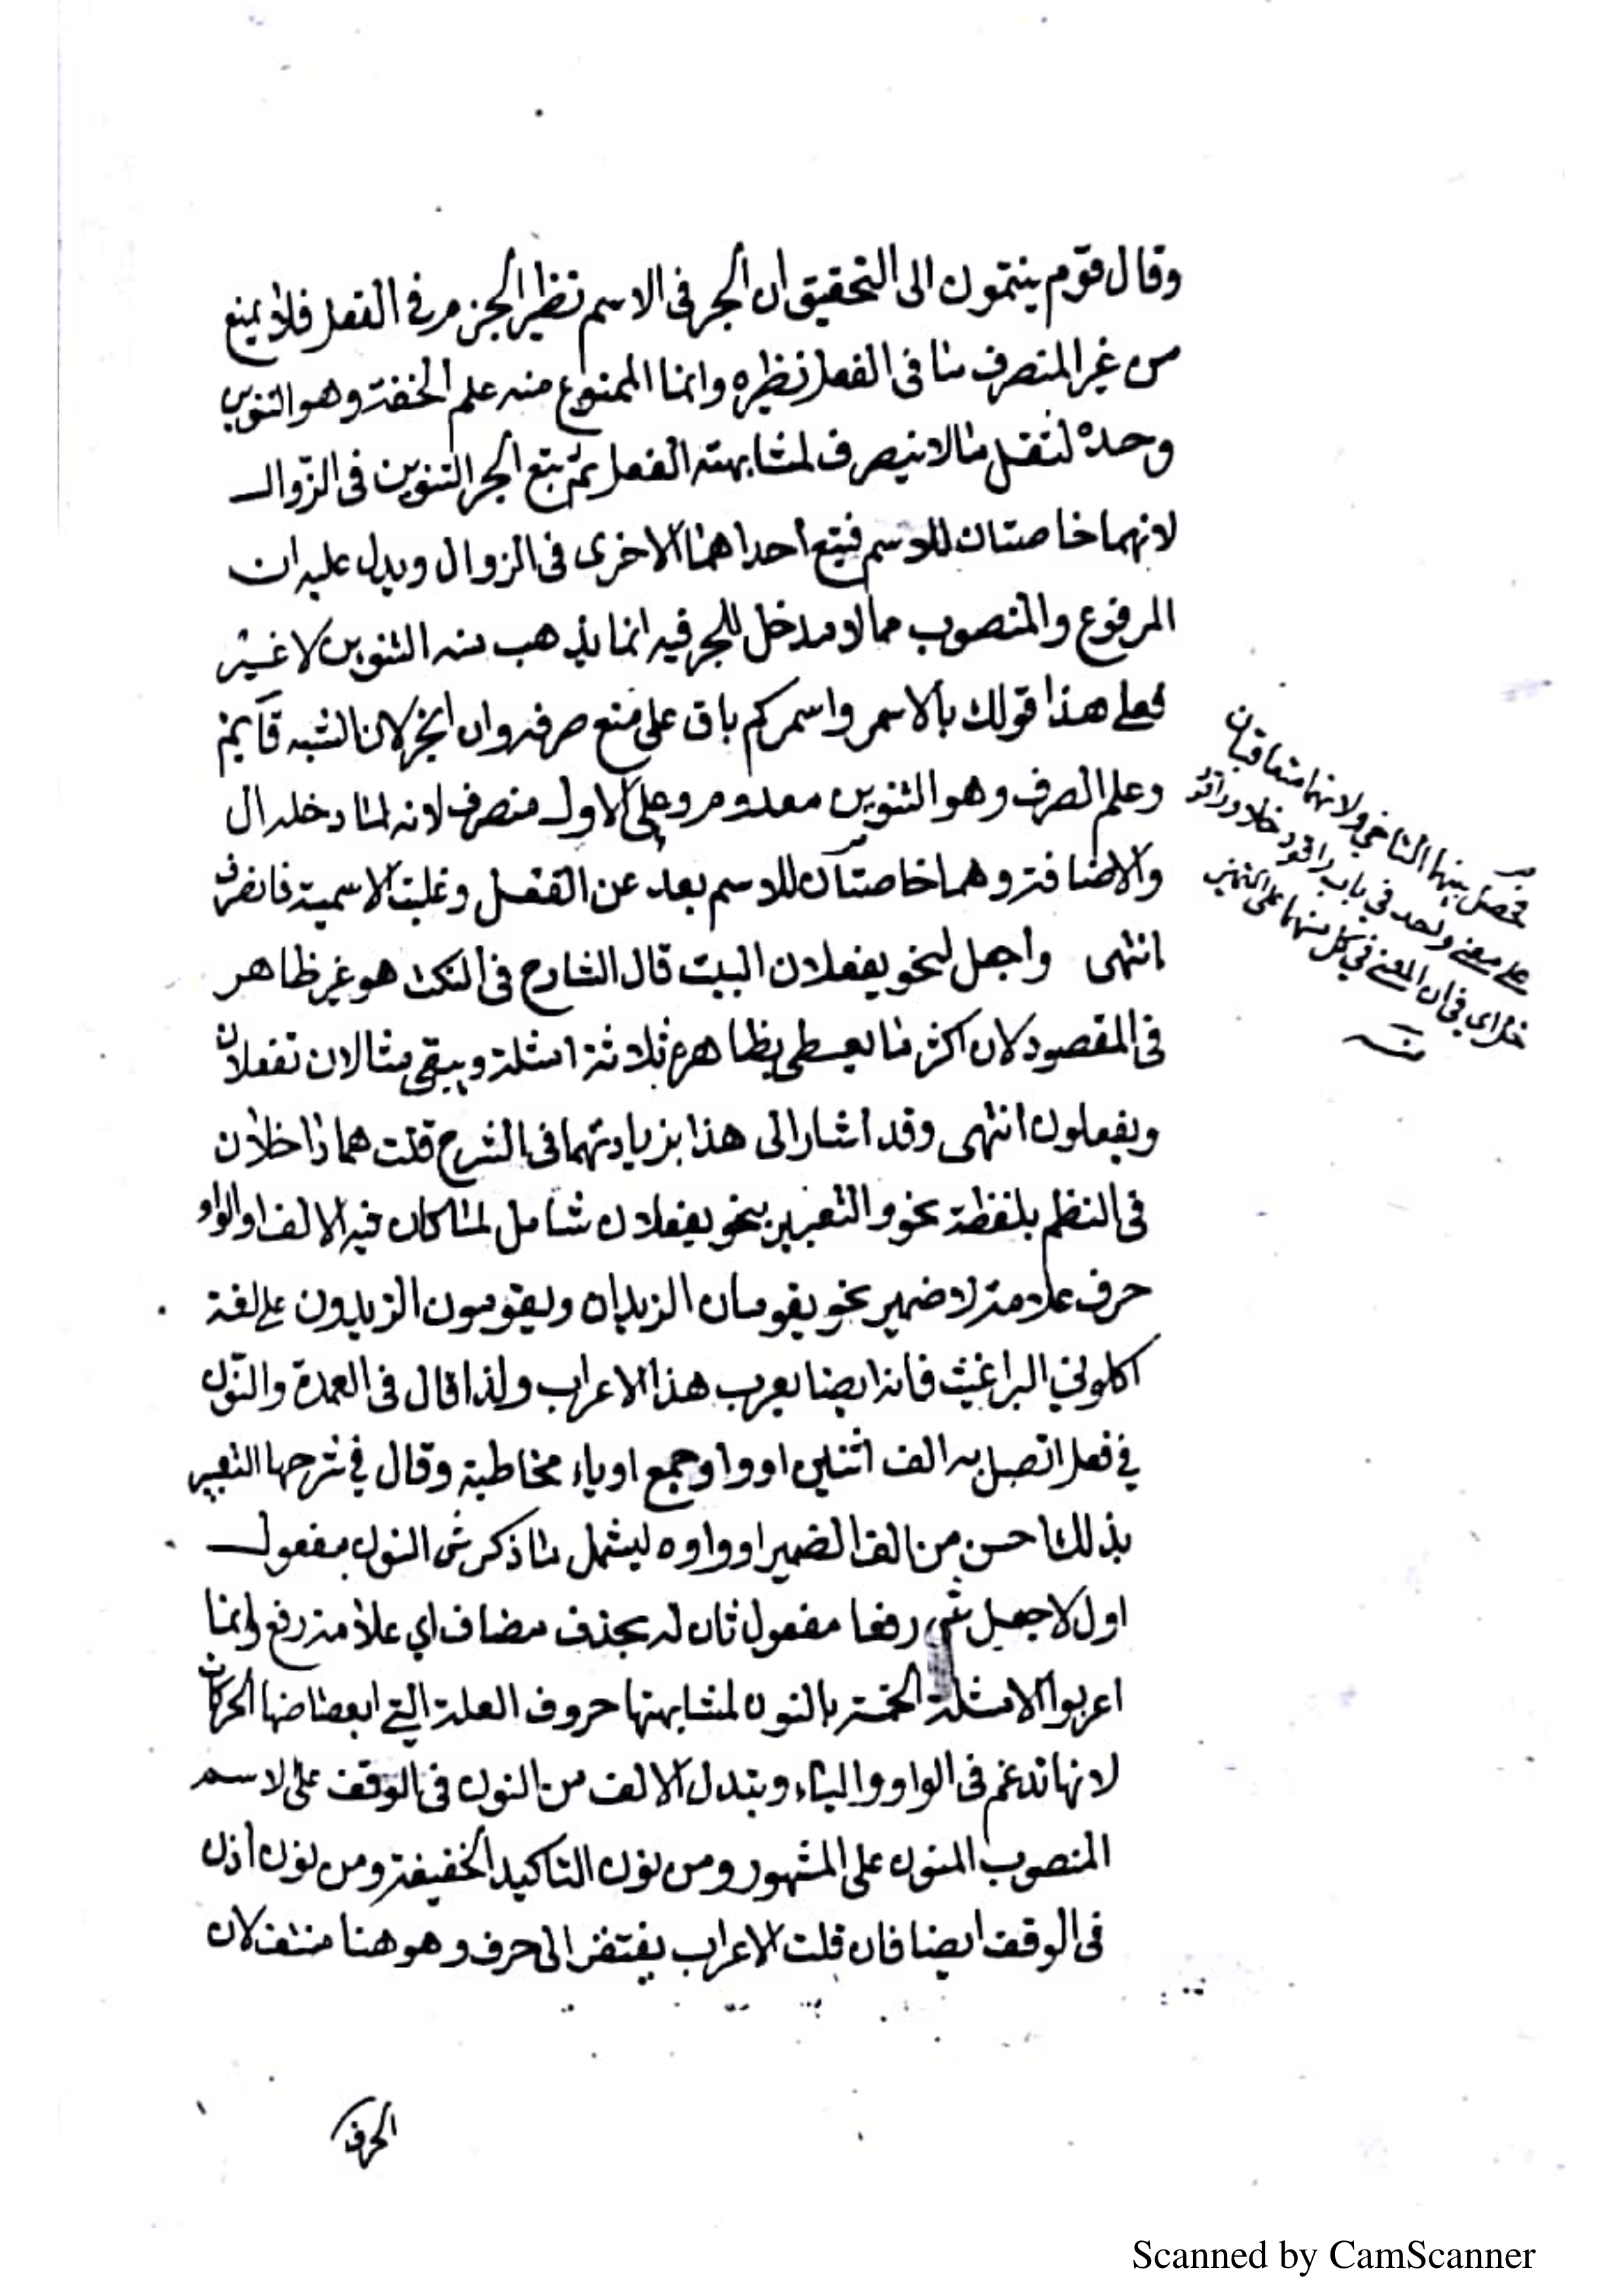 وقال قوم ينتمون الى التحقيق ان الجر فى الاسم نظير الجزم فى الفعل فلا يمنع
من غير المنصرف ما فى الفعل نظيره وانما الممنوع منه علم الخفة وهو التنوين
وحده لثقل ما لا ينصرف لمشابهته الفعل ثم تبع الجر التنوين فى الزوال
لانهما خاصتان للاسم فتبع احداهما الاخرى فى الزوال ويدل عليه ان
المرفوع والمنصوب مما لا مدخل للجر فيه انما يذهب منه التنوين لا غير
فعلى هذا قولك بالاحمر واحمركم باق على منع صرفه وان انجر لان الشبه قائم
وعلم الصرف وهو التنوين معدوم وعلى الاول منصرف لانه لما دخله ال
والاضافة وهما خاصتان للاسم بعد عن الفعل وغلبت الاسمية فانصرف
انتهى واجعل لنحو يفعلان البيت قال الشارح فى النكت هو غير ظاهر
فى المقصود لان اكثر ما يعطى بظاهره ثلاثة امثلة ويبقى مثالان تفعلان
ويفعلون انتهى وقد اشار الى هذا بزيادتهما فى الشرح قلت هما داخلان
فى النظم بلفظة نحو والتعبير بنحو يفعلان شامل لما كان فيه الالف او الواو
حرف علامة لا ضمير نحو يقومان الزيدان ويقومون الزيدون على لغة
اكلونى البراغيث فانه ايضا يعرب هذا الاعراب ولذا قال فى العمدة والنون
في فعل اتصل به الف اثنين او واو جمع او ياء مخاطبة وقال في شرحها التعبير
بذلك احسن من الف الضمير او واوه ليشمل ما ذكر شى النون مفعول
اول لاجعل شى رفعا مفعول ثان له بحذف مضاف اي علامة رفع وانما
اعربوا الامثلة الخمسة بالنون لمشابهتها حروف العلة التي ابعاضها الحركات
لانها تدغم فى الواو والياء وتبدل الالف من النون فى الوقف على الاسم
المنصوب المنون على المشهور ومن نون التاكيد الخفيفة ومن نون اذن
فى الوقف ايضا فان قلت الاعراب يفتقر الى حرف وهو هنا منتف لان
الحرف
فحصل بينهما التآخي ولانهما متعاقبان
على معنى واحد في باب راقود خلا وراقود
خل اى في ان المعنى في كل منهما على التمييز
منه
Scanned by CamScanner